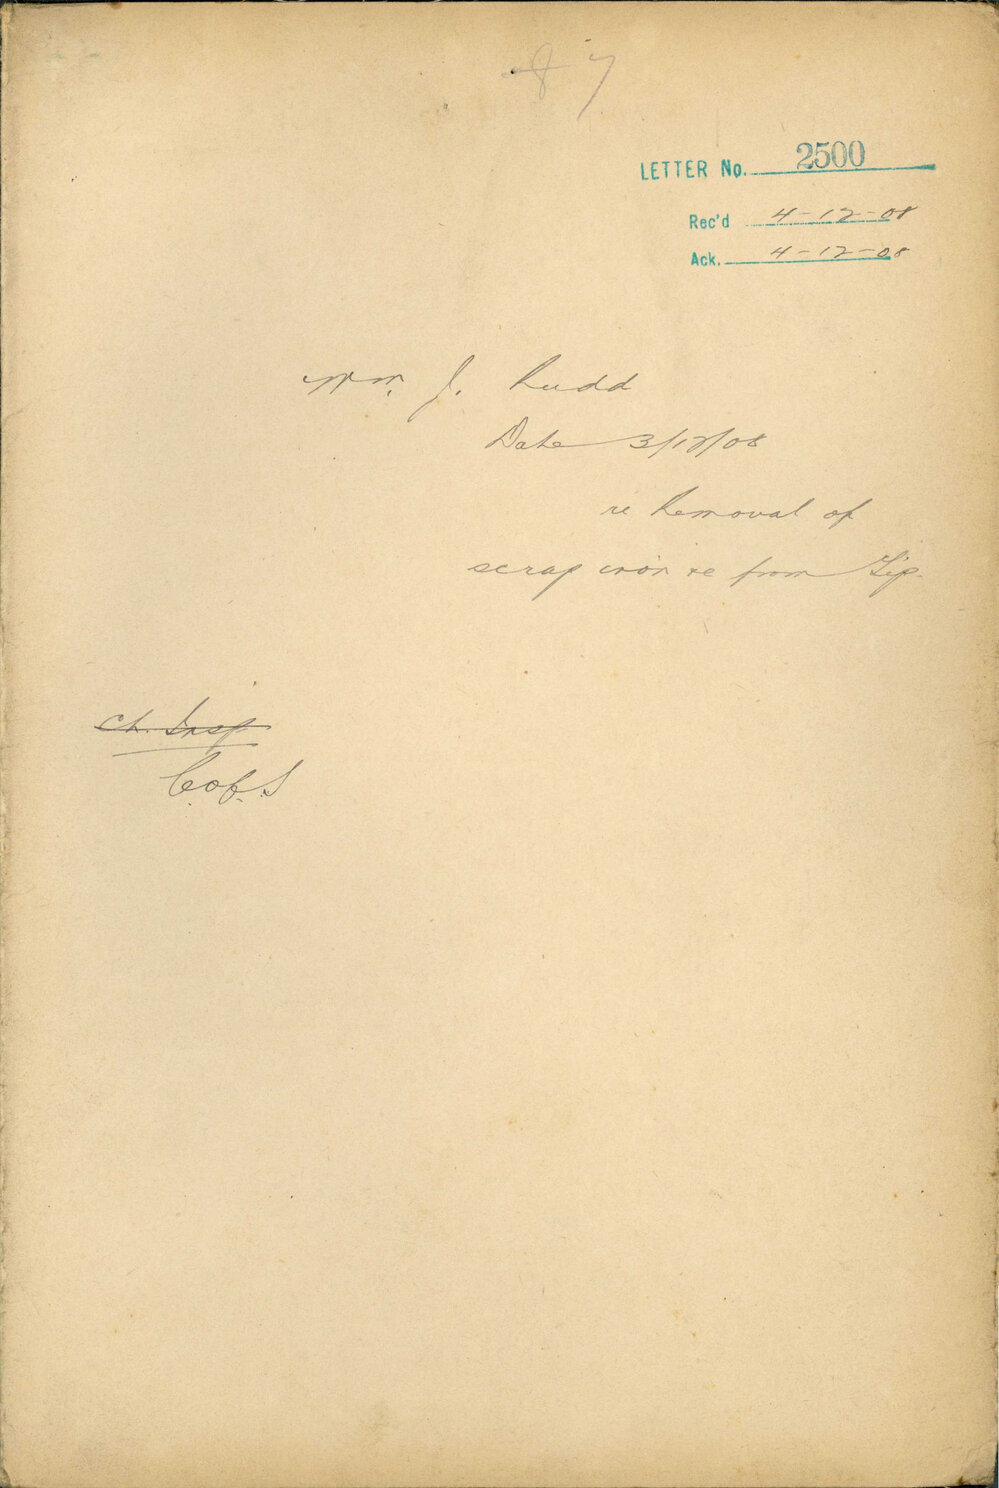 87
LETTER No. 2500
Rec'd 4-12-08
Ack. 4-12-08
Wm. J. Rudd
Date 3/12/08
re Removal of
scrap iron re from Tip.
Ch. Insp
C of S